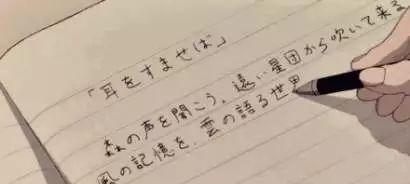 「耳をすませば」
森の声を聞こう、遠い星団から吹いて来る
風の記憶を、雲の語る世界